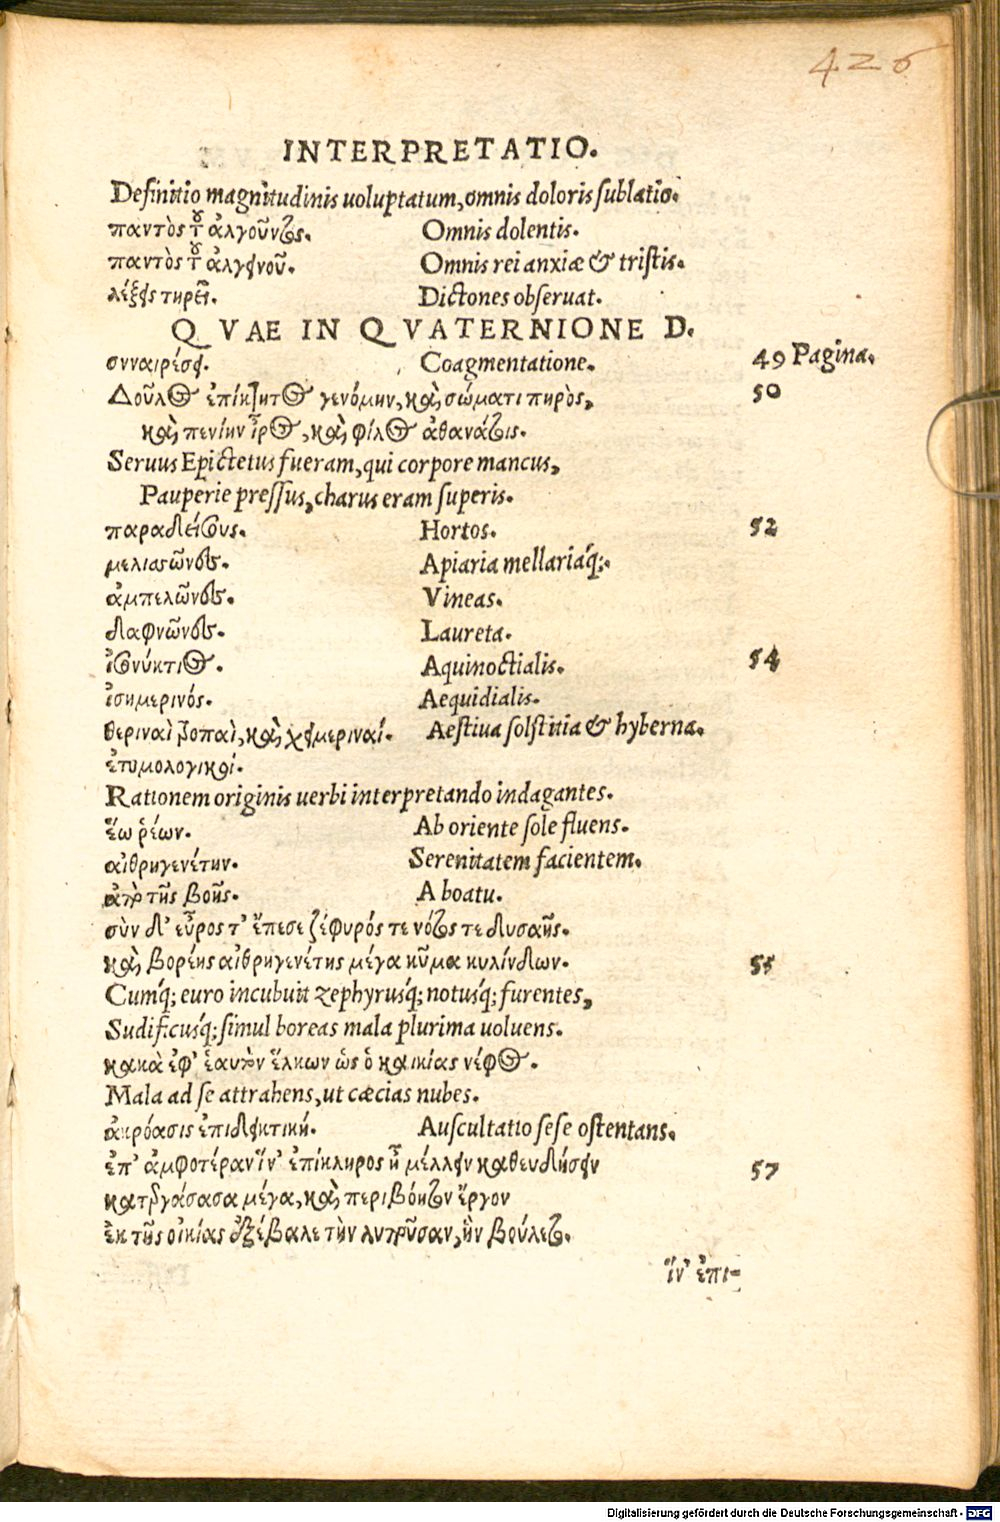 426
INTERPRETATIO.
Definitio magnitudinis uoluptatum, omnis doloris sublatio.
παντὸς τοῦ ἀλγοῦντος. Omnis dolentis.
παντὸς τοῦ ἀλγεινοῦ. Omnis rei anxiæ & tristis.
λέξεις τηρεῖ. Dictones obseruat.
QVAE IN QVATERNIONE D.
συναιρέσει. Coagmentatione. 49 Pagina.
Δοῦλος ἐπίκτητος γενόμην, καὶ σώματι πηρὸς, 50
καὶ πενίην ἶρος, καὶ φίλος ἀθανάτοις.
Seruus Epictetus fueram, qui corpore mancus,
Pauperie pressus, charus eram superis.
παραδείσους. Hortos. 52
μελισσῶνας. Apiaria mellariaq́;.
ἀμπελῶνας. Vineas.
δαφνῶνας. Laureta.
ἰσονύκτιος. Aquinoctialis. 54
ἰσημερινός. Aequidialis.
θεριναὶ τροπαὶ, καὶ χειμεριναί. Aestiua solstitia & hyberna.
ἐτυμολογικοί.
Rationem originis uerbi interpretando indagantes.
ἕω ῥέων. Ab oriente sole fluens.
αἰθρηγενέτην. Serenitatem facientem.
ἀπὸ τῆς βοῆς. A boatu.
σὺν δ' εὖρος τ' ἔπεσε ζέφυρός τε νότος τε δυσαὴς.
καὶ βορέης αἰθρηγενέτης μέγα κῦμα κυλίνδων. 55
Cumq́; euro incubuit zephyrusq́; notusq́; furentes,
Sudificusq́; simul boreas mala plurima uoluens.
κακὰ ἐφ' ἑαυτὸν ἕλκων ὡς ὁ καικίας νέφος.
Mala ad se attrahens, ut cæcias nubes.
ἀκρόασις ἐπιδεικτική. Auscultatio sese ostentans.
ἐπ' ἀμφοτέραν ἵν' ἐπίκληρος ἡ μέλλειν καθευδήσειν 57
κατεργάσασα μέγα, καὶ περιβόητον ἔργον
ἐκ τῆς οἰκίας ἐξέβαλε τὴν λυποῦσαν, ἣν βούλετο.
ἵν' ἐπι=
Digitalisierung gefördert durch die Deutsche Forschungsgemeinschaft - DFG